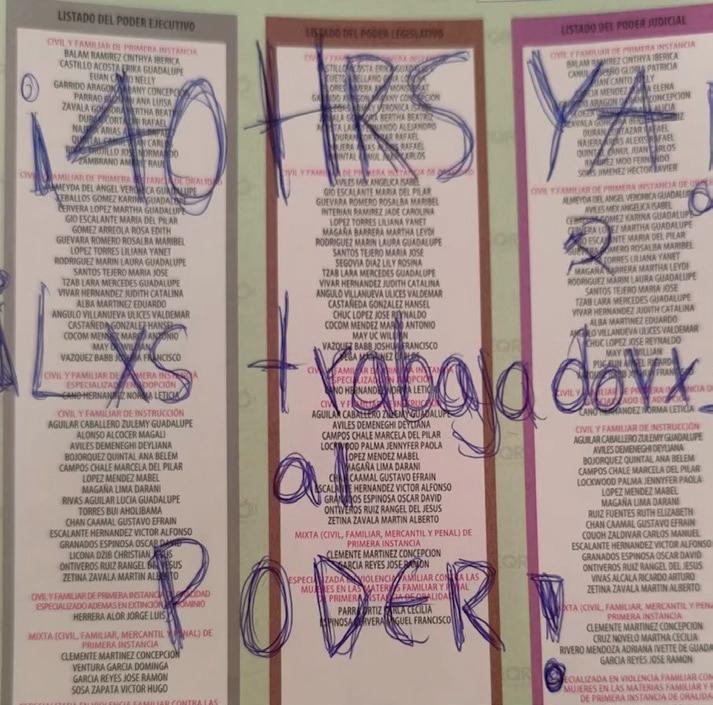 ¡40 HRS YA!
LXS trabajadorxs
al
PODER!
LISTADO DEL PODER EJECUTIVO
CIVIL Y FAMILIAR DE PRIMERA INSTANCIA
BALAM RAMIREZ CINTHYA IBERICA
CASTILLO ACOSTA ERIKA GUADALUPE
EUAN NELLY
GARRIDO ARAGON CONCEPCION
PARRAO ANA LUISA
ZAVALA BERTHA BEATRIZ
RAFAEL
RAFAEL
ZAMBRANO
CIVIL Y FAMILIAR DE PRIMERA INSTANCIA DE ORALIDAD
ALMEYDA DEL ANGEL VERONICA GUADALUPE
CEBALLOS GOMEZ KARINA GUADALUPE
CERVERA LOPEZ MARTHA GUADALUPE
GIO ESCALANTE MARIA DEL PILAR
GOMEZ ARREOLA ROSA EDITH
GUEVARA ROMERO ROSALBA MARIBEL
LOPEZ TORRES LILIANA YANET
RODRIGUEZ MARIN LAURA GUADALUPE
SANTOS TEJERO MARIA JOSE
TZAB LARA MERCEDES GUADALUPE
VIVAR HERNANDEZ JUDITH CATALINA
ALBA MARTINEZ EDUARDO
ANGULO VILLANUEVA ULICES VALDEMAR
CASTAÑEDA GONZALEZ HANSEL
COCOM MENDEZ MARIO ANTONIO
MAY UC WILLIAN
VAZQUEZ BABB JOSHUA FRANCISCO
CIVIL Y FAMILIAR DE PRIMERA INSTANCIA
ESPECIALIZADA EN ADOPCIÓN
CANO HERNANDEZ NORMA LETICIA
CIVIL Y FAMILIAR DE INSTRUCCIÓN
AGUILAR CABALLERO ZULEMY GUADALUPE
ALONSO ALCOCER MAGALI
AVILES DEMENEGHI DEYLIANA
BOJORQUEZ QUINTAL ANA BELEM
CAMPOS CHALE MARICELA DEL PILAR
LOPEZ MENDEZ MABEL
MAGAÑA LIMA DARANI
RIVAS AGUILAR LUCIA GUADALUPE
TORRES BUI AHOLIBAMA
CHAN CAAMAL GUSTAVO EFRAIN
ESCALANTE HERNANDEZ VICTOR ALFONSO
GRANADOS ESPINOSA OSCAR DAVID
LICONA DZIB CHRISTIAN JESUS
ONTIVEROS RUIZ RANGEL DEL JESUS
ZETINA ZAVALA MARTIN ALBERTO
CIVIL Y FAMILIAR DE PRIMERA INSTANCIA DE ORALIDAD
ESPECIALIZADO ADEMAS EN EXTINCIÓN DE DOMINIO
HERRERA ALOR JORGE LUIS
MIXTA (CIVIL, FAMILIAR, MERCANTIL Y PENAL) DE
PRIMERA INSTANCIA
CLEMENTE MARTINEZ CONCEPCION
VENTURA GARCIA DOMINGA
GARCIA REYES JOSE RAMON
SOSA ZAPATA VICTOR HUGO
ESPECIALIZADA EN VIOLENCIA FAMILIAR CONTRA LAS
LISTADO DEL PODER LEGISLATIVO
CIVIL Y FAMILIAR DE PRIMERA INSTANCIA
CASTILLO ACOSTA ERIKA GUADALUPE
BERTHA BEATRIZ
FERNANDO ALEJANDRO
RAFAEL
RAFAEL
QUINTAL CANUL JUAN CARLOS
AVILES MEX ANGELICA ISABEL
GIO ESCALANTE MARIA DEL PILAR
GUEVARA ROMERO ROSALBA MARIBEL
INTERIAN RAMIREZ JADE CAROLINA
LOPEZ TORRES LILIANA YANET
MAGAÑA BARRERA MARTHA LEYDI
RODRIGUEZ MARIN LAURA GUADALUPE
SANTOS TEJERO MARIA JOSE
SEGOVIA DIAZ LILY ROSINA
TZAB LARA MERCEDES GUADALUPE
VIVAR HERNANDEZ JUDITH CATALINA
ANGULO VILLANUEVA ULICES VALDEMAR
CASTAÑEDA GONZALEZ HANSEL
CHUC LOPEZ JOSE REYNALDO
COCOM MENDEZ MARIO ANTONIO
MAY UC WILLIAN
VAZQUEZ BABB JOSHUA FRANCISCO
CANO HERNANDEZ NORMA LETICIA
AGUILAR CABALLERO ZULEMY GUADALUPE
AVILES DEMENEGHI DEYLIANA
CAMPOS CHALE MARICELA DEL PILAR
LOCKWOOD PALMA JENNYFER PAOLA
LOPEZ MENDEZ MABEL
MAGAÑA LIMA DARANI
CHAN CAAMAL GUSTAVO EFRAIN
ESCALANTE HERNANDEZ VICTOR ALFONSO
GRANADOS ESPINOSA OSCAR DAVID
ONTIVEROS RUIZ RANGEL DEL JESUS
ZETINA ZAVALA MARTIN ALBERTO
MIXTA (CIVIL, FAMILIAR, MERCANTIL Y PENAL) DE
PRIMERA INSTANCIA
CLEMENTE MARTINEZ CONCEPCION
GARCIA REYES JOSE RAMON
ESPECIALIZADA EN VIOLENCIA FAMILIAR CONTRA LAS
MUJERES EN LAS MATERIAS FAMILIAR Y PENAL
DE PRIMERA INSTANCIA DE ORALIDAD
PARRA ORTIZ KARLA CECILIA
ESPINOSA CERVERA MIGUEL FRANCISCO
LISTADO DEL PODER JUDICIAL
CIVIL Y FAMILIAR DE PRIMERA INSTANCIA
BALAM RAMIREZ CINTHYA IBERICA
PATRICIA
NELLY
ELENA
CONCEPCION
BEATRIZ
RAFAEL
RAFAEL
QUINTAL CANUL JUAN CARLOS
RAMIREZ MOO FERNANDO
SOLIS JIMENEZ HECTOR XAVIER
CIVIL Y FAMILIAR DE PRIMERA INSTANCIA DE
ALMEYDA DEL ANGEL VERONICA GUADALUPE
AVILES MEX ANGELICA ISABEL
GOMEZ KARINA GUADALUPE
LOPEZ MARTHA GUADALUPE
ESCALANTE MARIA DEL PILAR
ROMERO ROSALBA MARIBEL
TORRES LILIANA YANET
MAGAÑA BARRERA MARTHA LEYDI
RODRIGUEZ MARIN LAURA GUADALUPE
SANTOS TEJERO MARIA JOSE
TZAB LARA MERCEDES GUADALUPE
VIVAR HERNANDEZ JUDITH CATALINA
ALBA MARTINEZ EDUARDO
ANGULO VILLANUEVA ULICES VALDEMAR
CHUC LOPEZ JOSE REYNALDO
MAY UC WILLIAN
CANO HERNANDEZ NORMA LETICIA
CIVIL Y FAMILIAR DE INSTRUCCIÓN
AGUILAR CABALLERO ZULEMY GUADALUPE
AVILES DEMENEGHI DEYLIANA
BOJORQUEZ QUINTAL ANA BELEM
CAMPOS CHALE MARICELA DEL PILAR
LOCKWOOD PALMA JENNYFER PAOLA
LOPEZ MENDEZ MABEL
MAGAÑA LIMA DARANI
RUIZ FUENTES RUTH ELIZABETH
CHAN CAAMAL GUSTAVO EFRAIN
COUOH ZALDIVAR CARLOS MANUEL
ESCALANTE HERNANDEZ VICTOR ALFONSO
GRANADOS ESPINOSA OSCAR DAVID
ONTIVEROS RUIZ RANGEL DEL JESUS
VIVAS ALCALA RICARDO ARTURO
ZETINA ZAVALA MARTIN ALBERTO
MIXTA (CIVIL, FAMILIAR, MERCANTIL Y PENAL)
PRIMERA INSTANCIA
CLEMENTE MARTINEZ CONCEPCION
CRUZ NOVELO MARTHA CECILIA
RIVERO MENDOZA ADRIANA IVETTE DE GUADA
GARCIA REYES JOSE RAMON
ESPECIALIZADA EN VIOLENCIA FAMILIAR CON
MUJERES EN LAS MATERIAS FAMILIAR Y
DE PRIMERA INSTANCIA DE ORALIDAD